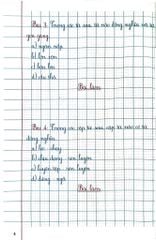 Bài 3: Trong các từ sau từ nào đồng nghĩa với từ
gọn gàng
a) ngăn nắp
b) lộn xộn
c) bừa bãi
d) cẩu thả
Bài làm
Bài 4: Trong các cặp từ sau, cặp từ nào có từ
đồng nghĩa
a) leo - chạy
b) chịu đựng - rèn luyện
c) luyện tập - rèn luyện
d) đứng - ngồi
Bài làm